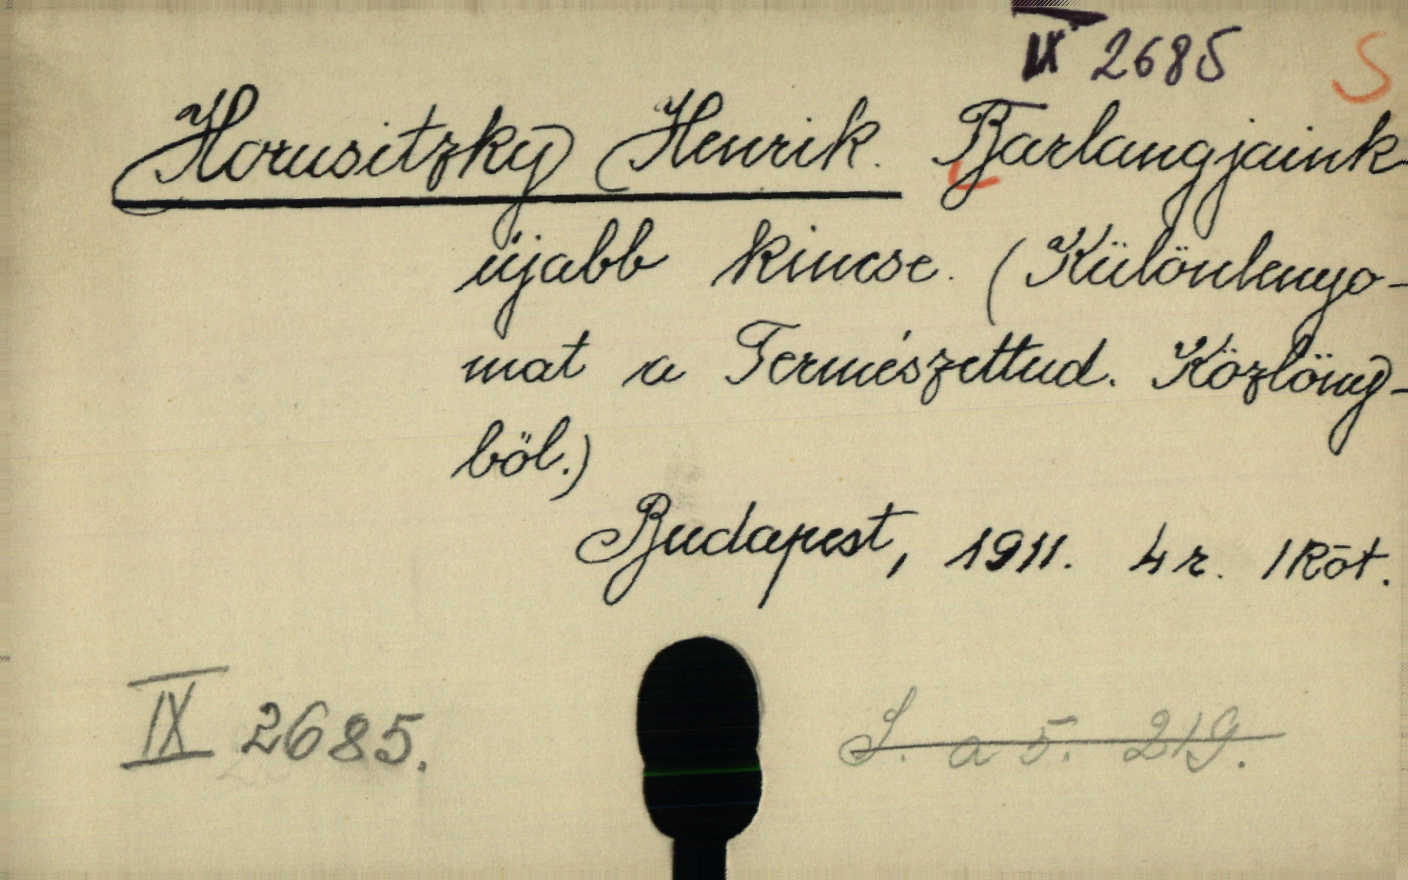 IX 2685 S
Horusitzky Henrik. Barlangjaink
újabb kincse. (Különlenyo-
mat a Természettud. Közlöny-
ből.)
Budapest, 1911. 4r. 1 Köt.
IX 2685.
S. a 5. 219.